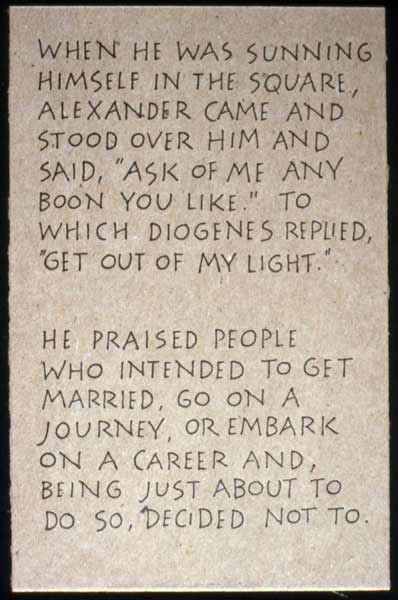 WHEN HE WAS SUNNING
HIMSELF IN THE SQUARE,
ALEXANDER CAME AND
STOOD OVER HIM AND
SAID, "ASK OF ME ANY
BOON YOU LIKE." TO
WHICH DIOGENES REPLIED,
"GET OUT OF MY LIGHT."
HE PRAISED PEOPLE
WHO INTENDED TO GET
MARRIED, GO ON A
JOURNEY, OR EMBARK
ON A CAREER AND,
BEING JUST ABOUT TO
DO SO, DECIDED NOT TO.